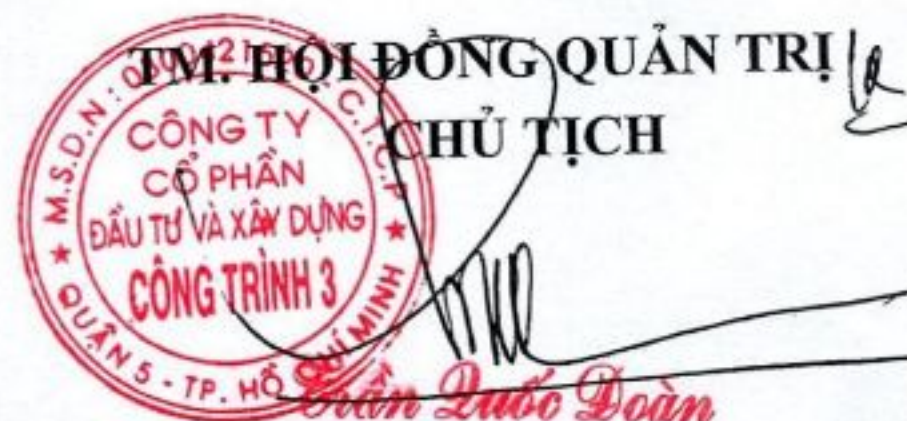 TM. HỘI ĐỒNG QUẢN TRỊ
CHỦ TỊCH
C.T.C.P
CÔNG TY
CỔ PHẦN
ĐẦU TƯ VÀ XÂY DỰNG
CÔNG TRÌNH 3
QUẬN 5 - TP. HỒ CHÍ MINH
Trần Quốc Đoàn